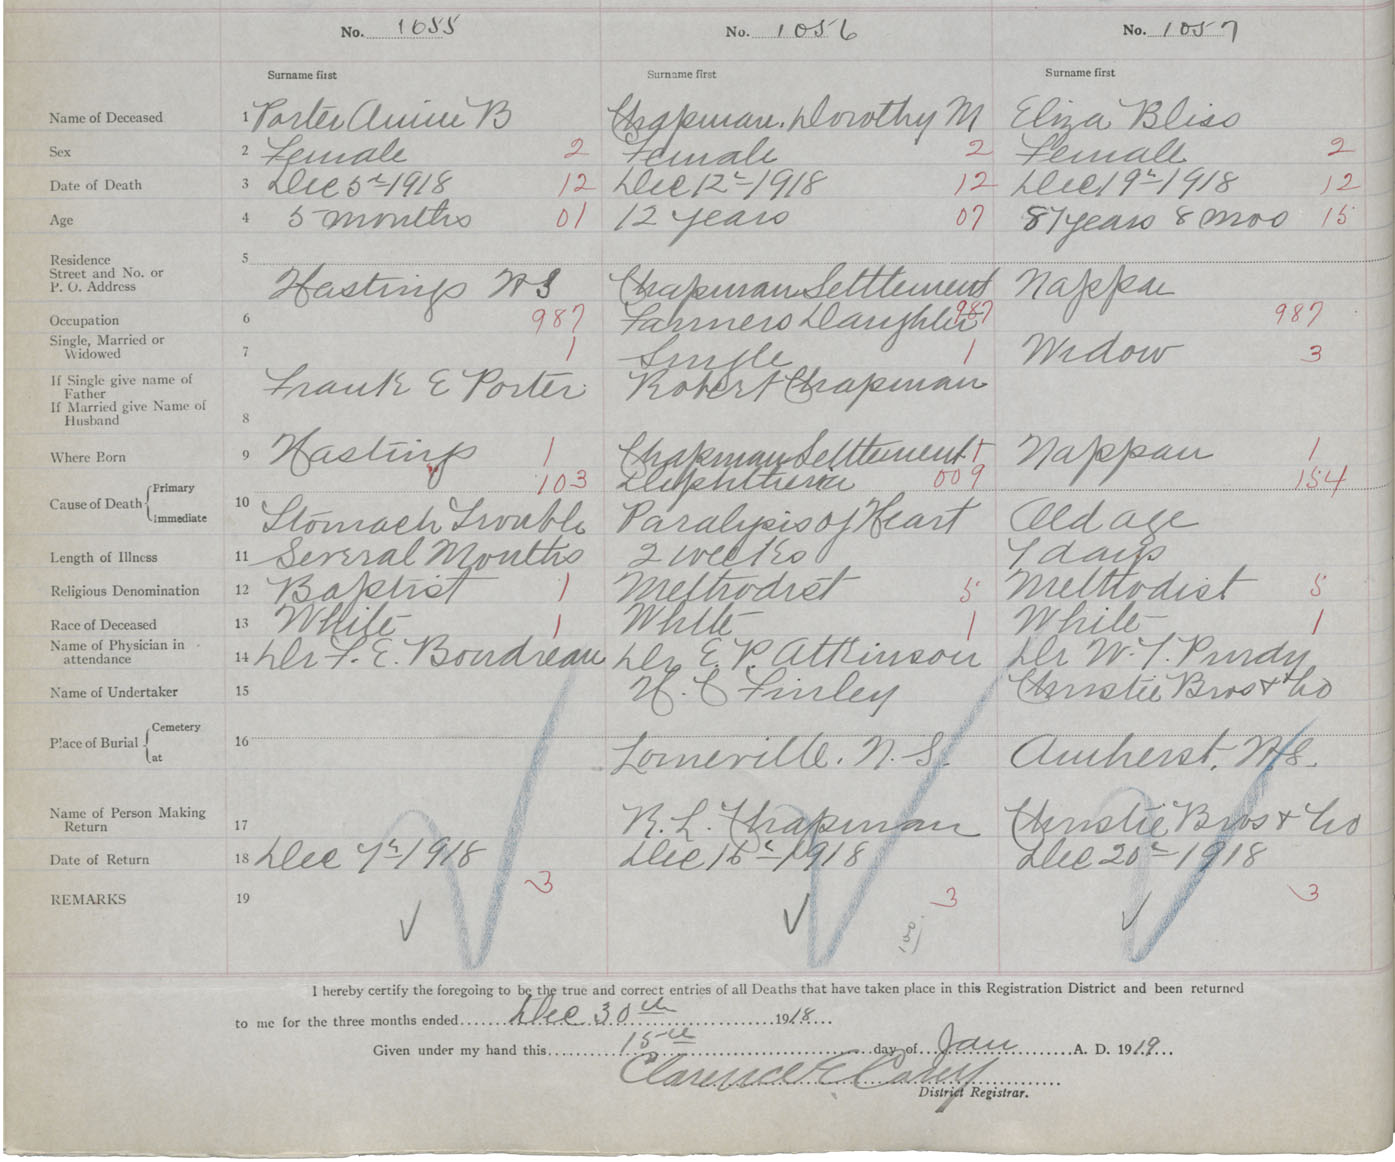 No. 1055 No. 1056 No. 1057
Surname first Surname first Surname first
Name of Deceased 1 Porter Annie B Chapman, Dorothy M Eliza Bliss
Sex 2 Female 2 Female 2 Female 2
Date of Death 3 Dec 5th 1918 12 Dec 12th 1918 12 Dec 19th 1918 12
Age 4 5 months 01 12 years 07 87 years 8 mos 15
Residence 5
Street and No. or
P. O. Address Hastings N S Chapman Settlement Nappan
Occupation 6 987 Farmers Daughter 987 987
Single, Married or
Widowed 7 1 Single 1 Widow 3
If Single give name of
Father Frank E Porter Robert Chapman
If Married give Name of
Husband 8
Where Born 9 Hastings 1 Chapman Settlement 1 Nappan 1
Cause of Death Primary 103 Diphtheria 009 154
Immediate 10 Stomach Trouble Paralysis of Heart Old age
Length of Illness 11 Several Months 2 weeks 7 days
Religious Denomination 12 Baptist 1 Methodist 5 Methodist 5
Race of Deceased 13 White 1 White 1 White 1
Name of Physician in
attendance 14 Dr F. E. Boudreau Dr E. P. Atkinson Dr W. T. Purdy
Name of Undertaker 15 H. C Finley Christie Bros & Co
Place of Burial Cemetery 16
at Lorneville. N. S. Amherst, N.S.
Name of Person Making
Return 17 R. L. Chapman Christie Bros & Co
Date of Return 18 Dec 7th 1918 Dec 16th 1918 Dec 20th 1918
REMARKS 19 3 3 3
100.
I hereby certify the foregoing to be the true and correct entries of all Deaths that have taken place in this Registration District and been returned
to me for the three months ended Dec 30th 1918
Given under my hand this 15th day of Jan A. D. 1919
Clarence E Casey
District Registrar.